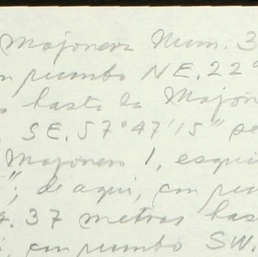 Majonera Num. 3
n rumbo NE. 22°
hasta la Major
SE. 57°47'15" se
Majonera 1, esqui
"; de aqui, con ru
4. 37 metros has
, con rumbo SW.